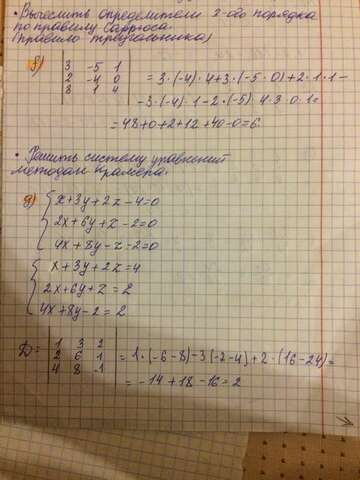 • Вычеслить определители 3-его порядка
по правилу Саррюса
(правило треугольника)
б) | 3 -5 1 |
| 2 -4 0 | = 3·(-4)·4+3·(-5·0)+2·1·1-
| 8 1 4 |
-3·(-4)·1-2·(-5)·4·3·0·1=
=48+0+2+12+40-0=6.
• Решить систему уравнений
методом Крамера.
д) { x+3y+2z-4=0
2x+6y+z-2=0
4x+8y-z-2=0
{ x+3y+2z=4
2x+6y+z=2
4x+8y-z=2
D= | 1 3 2 |
| 2 6 1 | = 1·(-6-8)-3(-2-4)+2·(16-24)=
| 4 8 -1 |
= -14+18-16=2